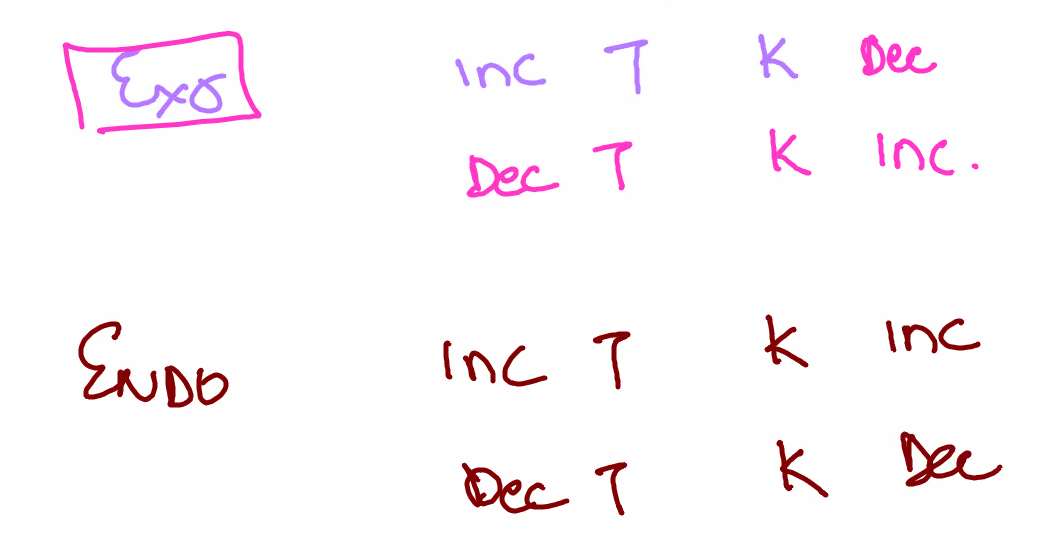 Exo Inc T K Dec
Dec T K Inc.
ENDO Inc T K Inc
Dec T K Dec